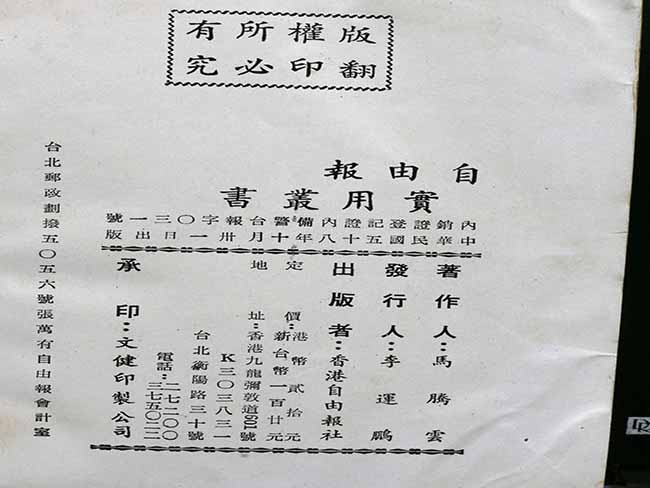 版權所有
翻印必究
自由報
實用叢書
內銷證登記證內備警台報字〇三一號
中華民國五十八年十月卅一日出版
著作人：馬騰雲
發行人：李運鵬
出版者：香港自由報社
定價：港幣貳拾元
新台幣一百廿元
地址：香港九龍彌敦道601號
K三〇三八三一
台北衡陽路三十號
電話：二七二〇〇
三七五〇二二
承印：文健印製公司
台北郵政劃撥五〇五六號張萬有自由報會計室